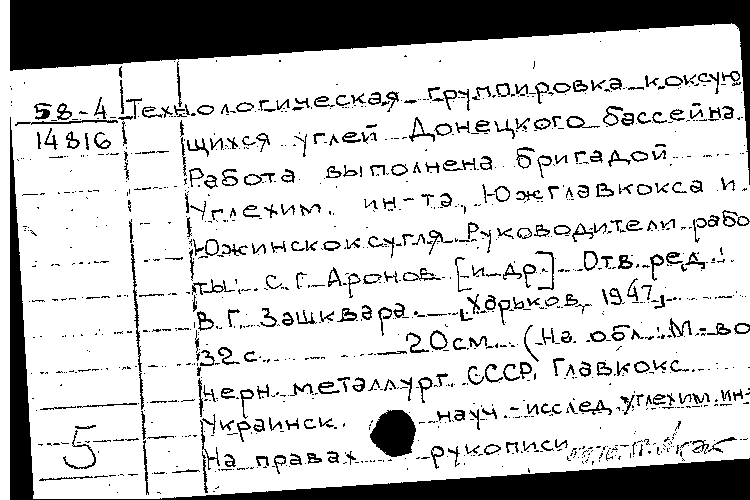 58-4 Технологическая группировка коксую
14816 щихся углей Донецкого бассейна.
Работа выполнена бригадой
Углехим. ин-та, Южглавкокса и
Южинскоксугля. Руководители рабо
ты: С. Г. Аронов [и др.] Отв. ред.:
В. Г. Зашквара. [Харьков, 1947].
32 с. 20 см. (На обл.: М-во
черн. металлург. СССР. Главкокс.
Украинск. науч.-исслед. углехим. ин-
5 На правах рукописи